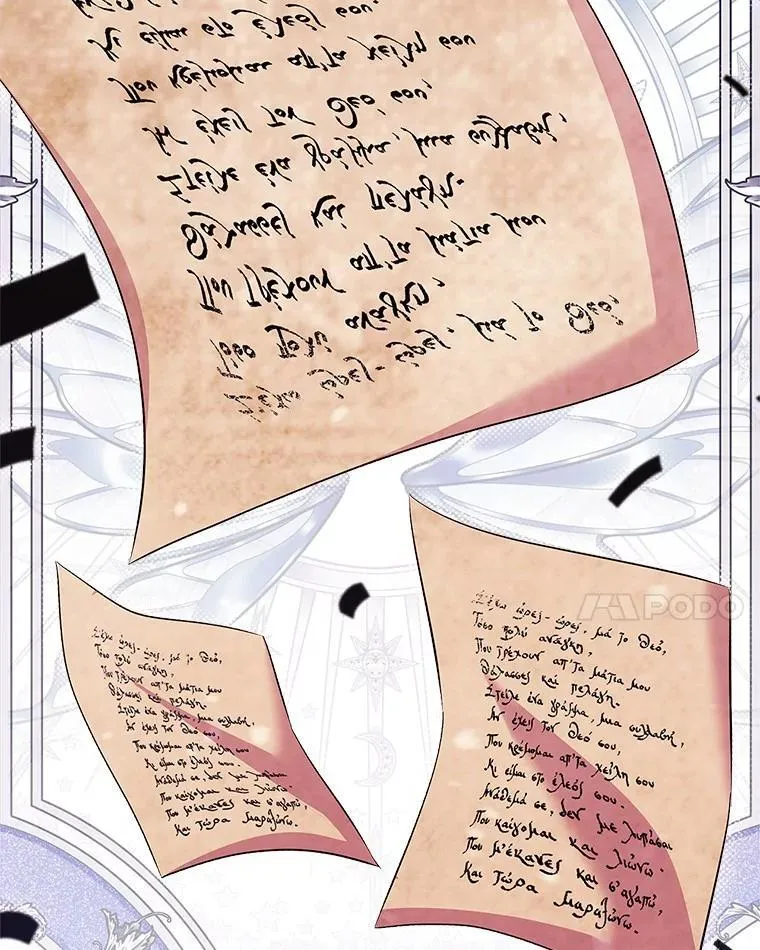 Κι είμαι στο έλεός σου.
Που κρέμομαι απ'τα χείλη σου
Αν έχεις τον Θεό σου,
Στείλε ένα γράμμα, μια συλλαβή,
Θάλασσες και πελάγη.
Που τρέχουν απ'τα μάτια μου
Τόσο πολύ ανάγκη,
Σ'έχω ώρες-ώρες, μά το Θεό,
Σ'έχω ώρες-ώρες, μά το Θεό,
Τόσο πολύ ανάγκη,
Που τρέχουν απ'τα μάτια μου
Θάλασσες και πελάγη.
Στείλε ένα γράμμα, μια συλλαβή,
Αν έχεις τον Θεό σου,
Που κρέμομαι απ'τα χείλη σου
Κι είμαι στο έλεός σου.
Ανάθεμά σε, δεν με λυπάσαι
Που καίγομαι και λιώνω.
Που μ'έκανες και σ'αγαπώ,
Και τώρα μαραζώνω.
Σ'έχω ώρες-ώρες, μά το Θεό,
Τόσο πολύ ανάγκη,
Που τρέχουν απ'τα μάτια μου
Θάλασσες και πελάγη.
Στείλε ένα γράμμα, μια συλλαβή,
Αν έχεις τον Θεό σου,
Που κρέμομαι απ'τα χείλη σου
Κι είμαι στο έλεός σου.
Ανάθεμά σε, δεν με λυπάσαι
Που καίγομαι και λιώνω.
Που μ'έκανες και σ'αγαπώ,
Και τώρα μαραζώνω.
PODO